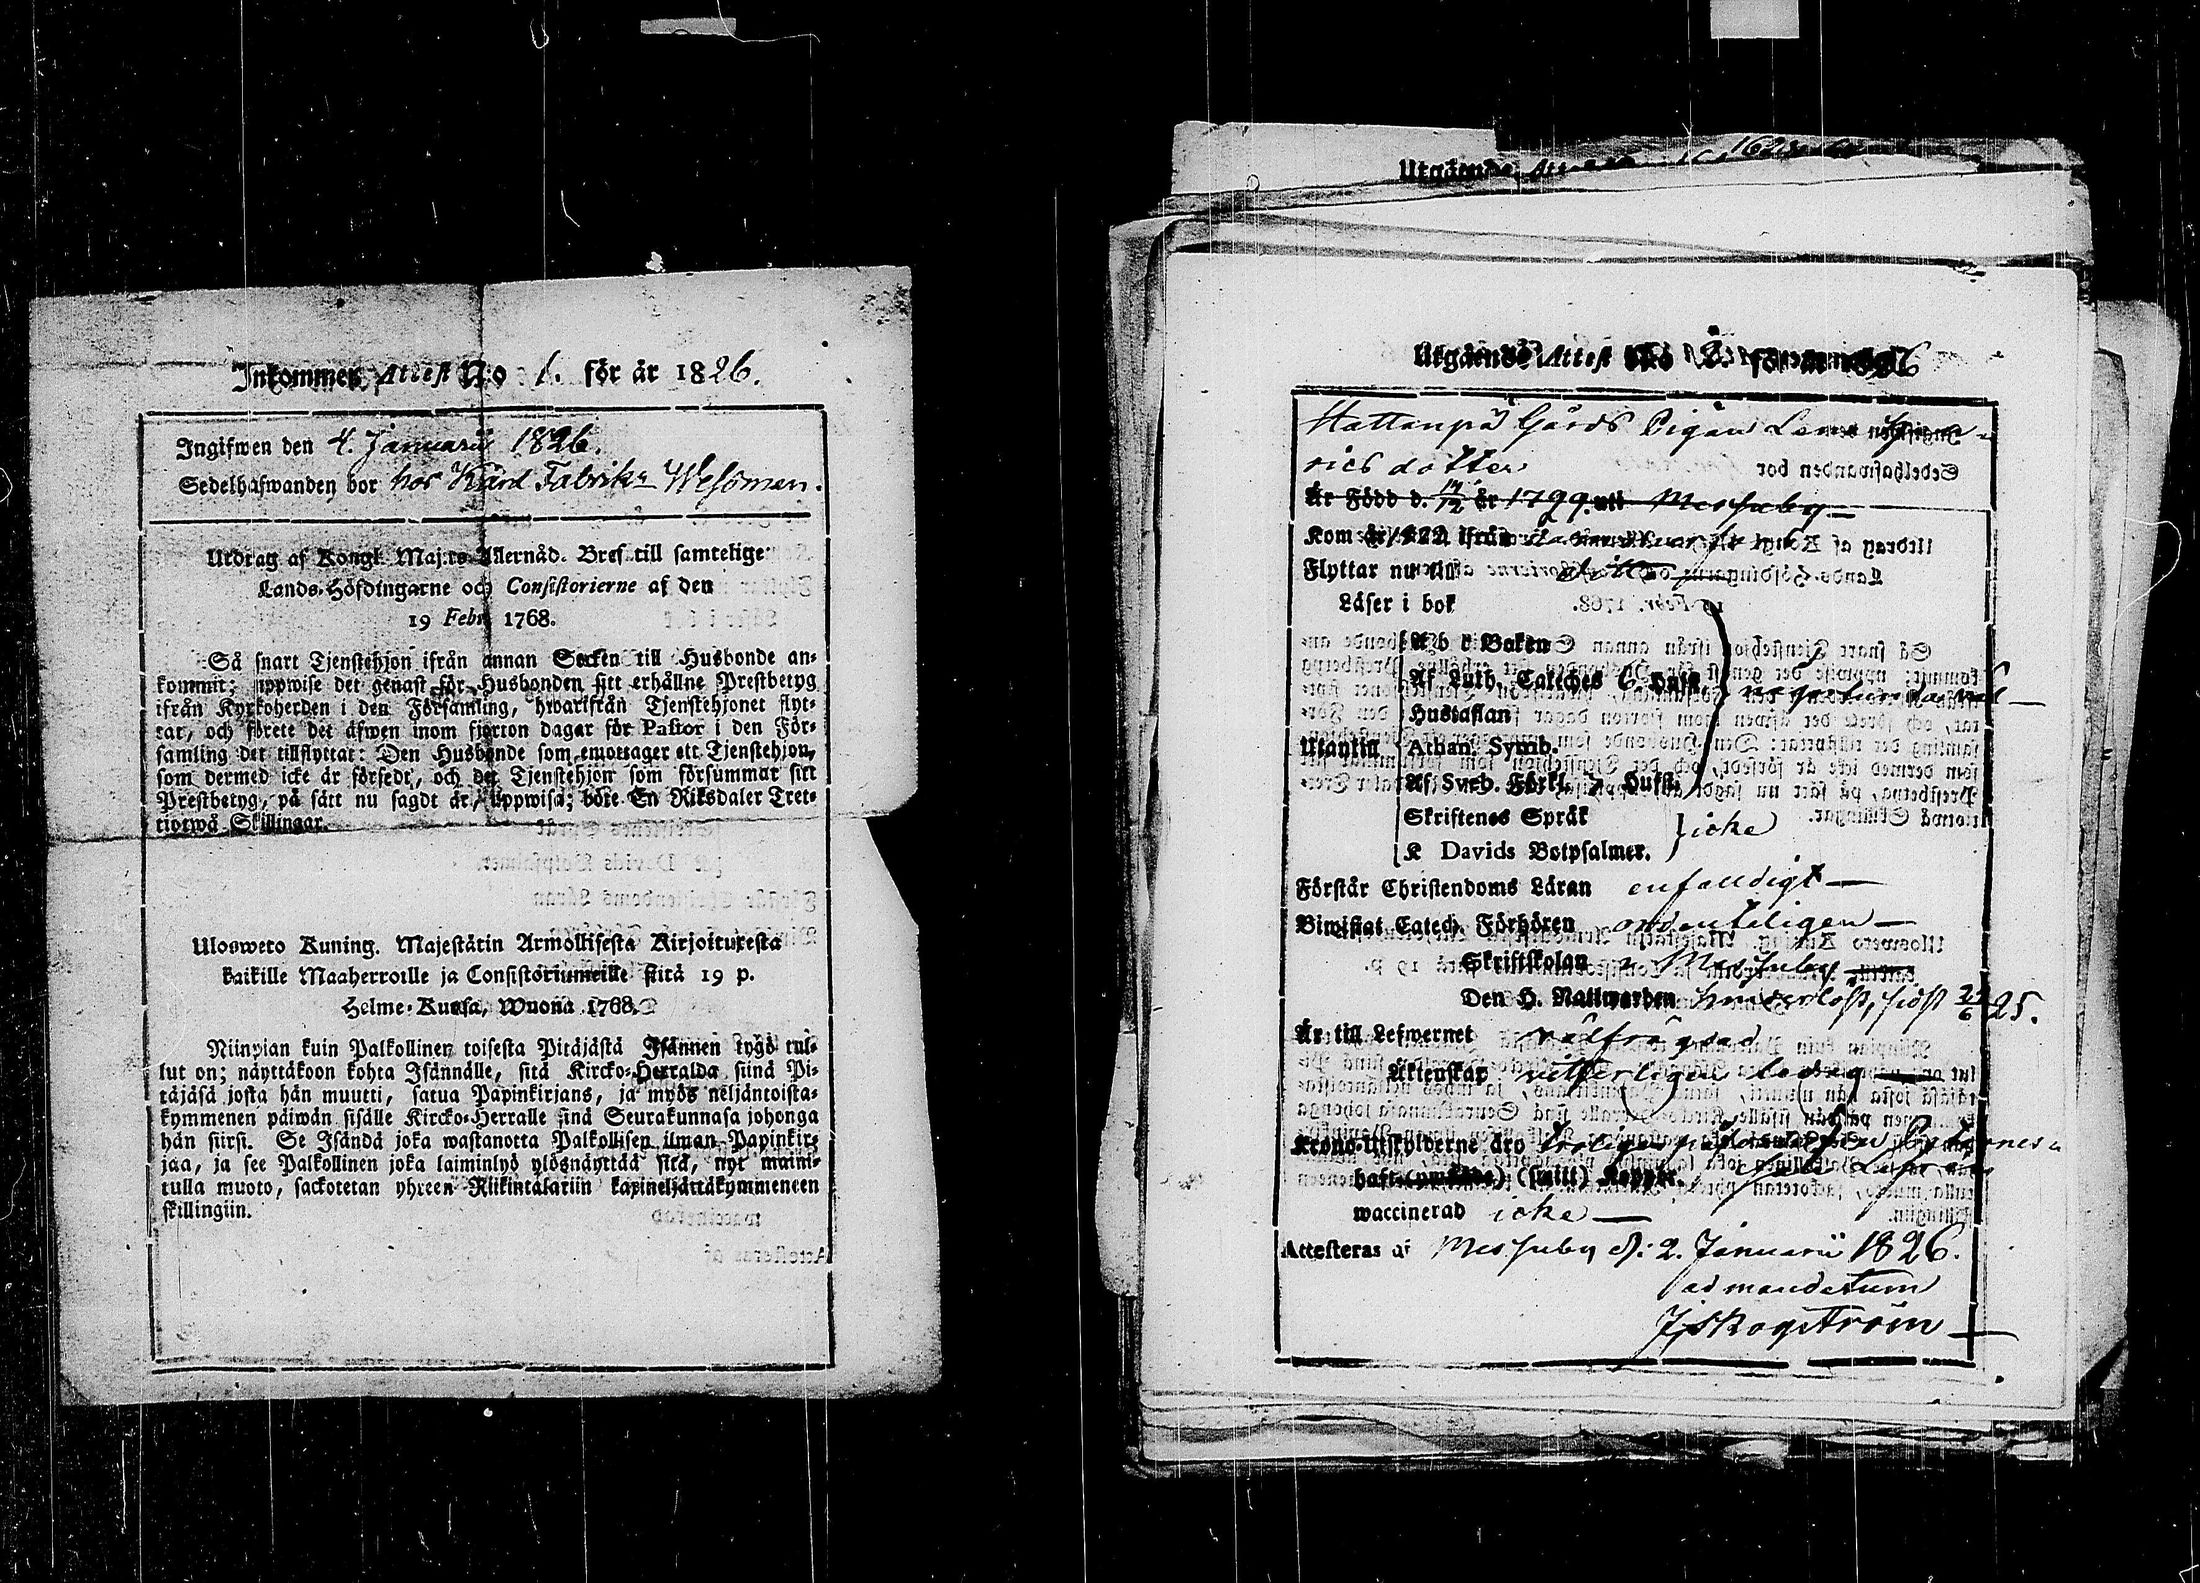 Inkommen Attest No 1. för år 1826.
Ingifwen den 4. Januarii 1826.
Sedelhafwanden bor hos Kård Fabrikn Wesöman.
Utdrag af Kongl. Maj:ts Allernåd. Bref till samtelige
Lands-Höfdingarne och Consistorierne af den
19 Febr. 1768.
Så snart Tjenstehjon ifrån annan Socken till Husbonde an-
kommit; uppwise det genast för Husbonden sitt erhållne Prestbetyg
ifrån Kyrkoherden i den Församling, hwarifrån Tjenstehjonet flyt-
tat, och förete det äfwen inom fjorton dagar för Pastor i den För-
samling det tillflyttat: Den Husbonde som emottager ett Tjenstehjon,
som dermed icke är försedt, och det Tjenstehjon som försummar sitt
Prestbetyg, på sätt nu sagdt är, uppwisa; böte En Riksdaler Tret-
tiotwå Skillingar.
Ulosweto Kuning. Majestätin Armollisesta Kirjoituxesta
kaikille Maaherroille ja Consistoriumeille siitä 19 p.
Helme-Kuusa, Wuonna 1768.
Niinpian kuin Palkollinen toisesta Pitäjästä Isännen tygö tul-
lut on; näyttäkoon kohta Isännälle, sitä Kircko-Herralda siinä Pi-
täjäsä josta hän muutti, saatua Papinkirjans, ja myös neljäntoista-
kymmenen päiwän sisälle Kircko-Herralle sinä Seurakunnasa johonga
hän siirsi. Se Isändä joka wastanotta Palkollisen ilman Papinkir-
jaa, ja see Palkollinen joka laiminlyö ylösnäyttää sitä, nyt maini-
tulla muoto, sackotetan yhteen Riikintalariin kaxineljättäkymmeneen
skillingiin.
Utgående Attest
Utgående Attest No 2. för år 1826
Hattanpä Gårds Pigan Lena Hen-
ricsdotter
Är Född d. 17/12 år 1799. uti Messuby
Kom år 1822 ifrån
Flyttar nu till
Läser i bok
A b c Boken
Af Luth. Cateches 6. Hufst.
Hustaflan
Utantill Athan. Symb.
Af Sveb. Förkl. 7 Hufst.
Skriftenes Språk
K Davids Botpsalmer. icke
Förstår Christendoms Läran enfalldigt
Biwistat Catech. Förhören ordenteligen
Skriftskolan i Messuby
Den H. Nattwarden sidst 29/6 25.
Är till Lefwernet wälfrägdad
Äktenskap witterligen ledig
Krono-Utskylderne äro
haft (smitt) Koppor.
waccinerad icke
Attesteras af Messuby d: 2. Januarii 1826.
ad mandatum
J. Skogström